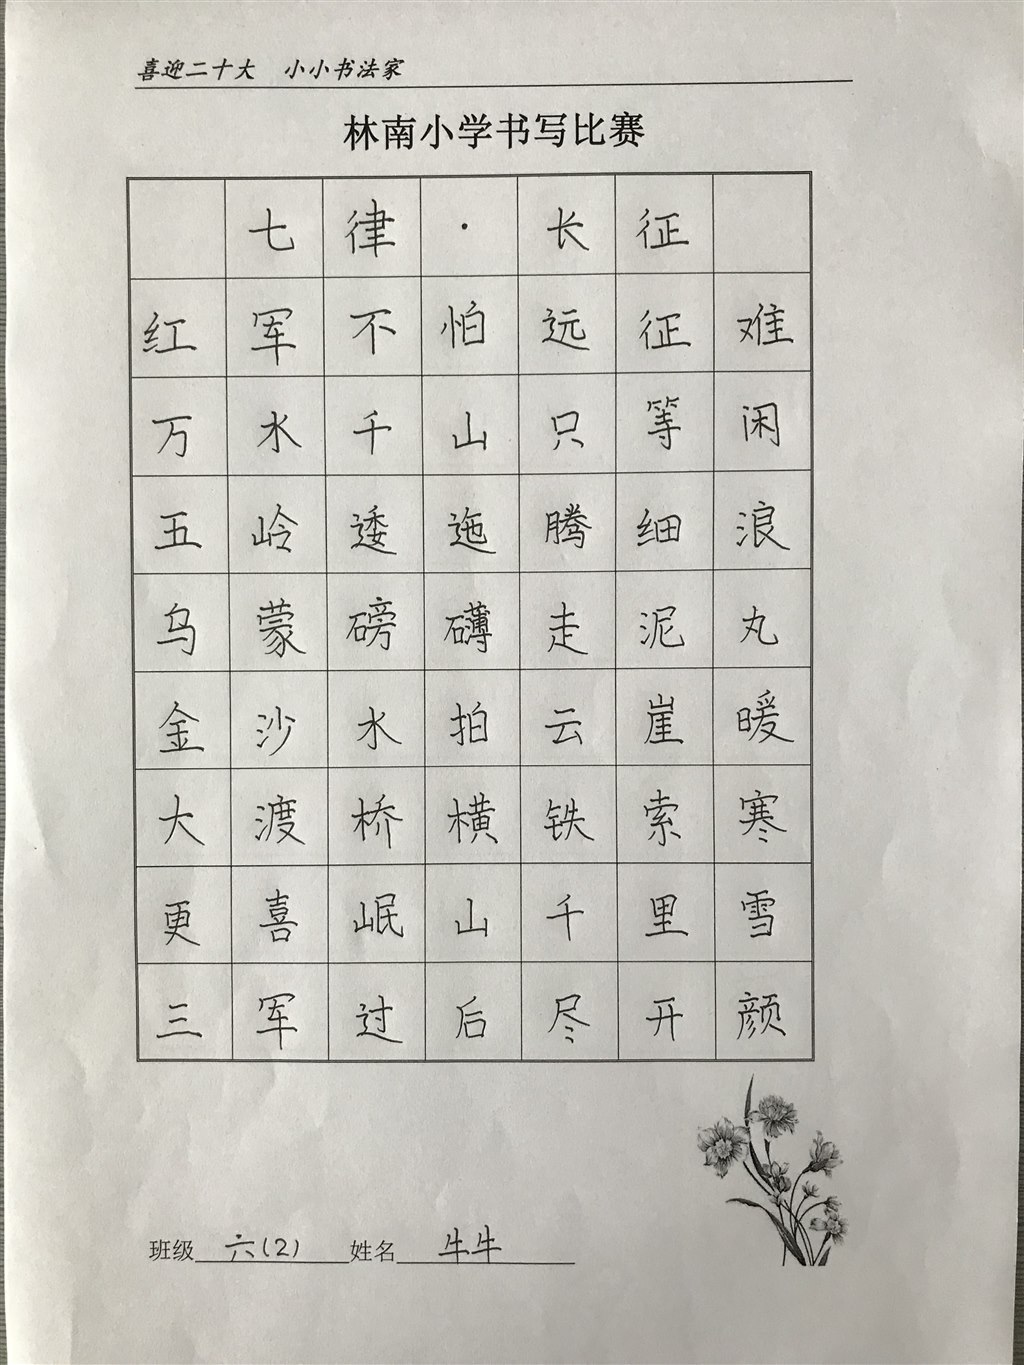 喜迎二十大 小小书法家
林南小学书写比赛
七律·长征
红军不怕远征难
万水千山只等闲
五岭逶迤腾细浪
乌蒙磅礴走泥丸
金沙水拍云崖暖
大渡桥横铁索寒
更喜岷山千里雪
三军过后尽开颜
班级 六(2) 姓名 牛牛